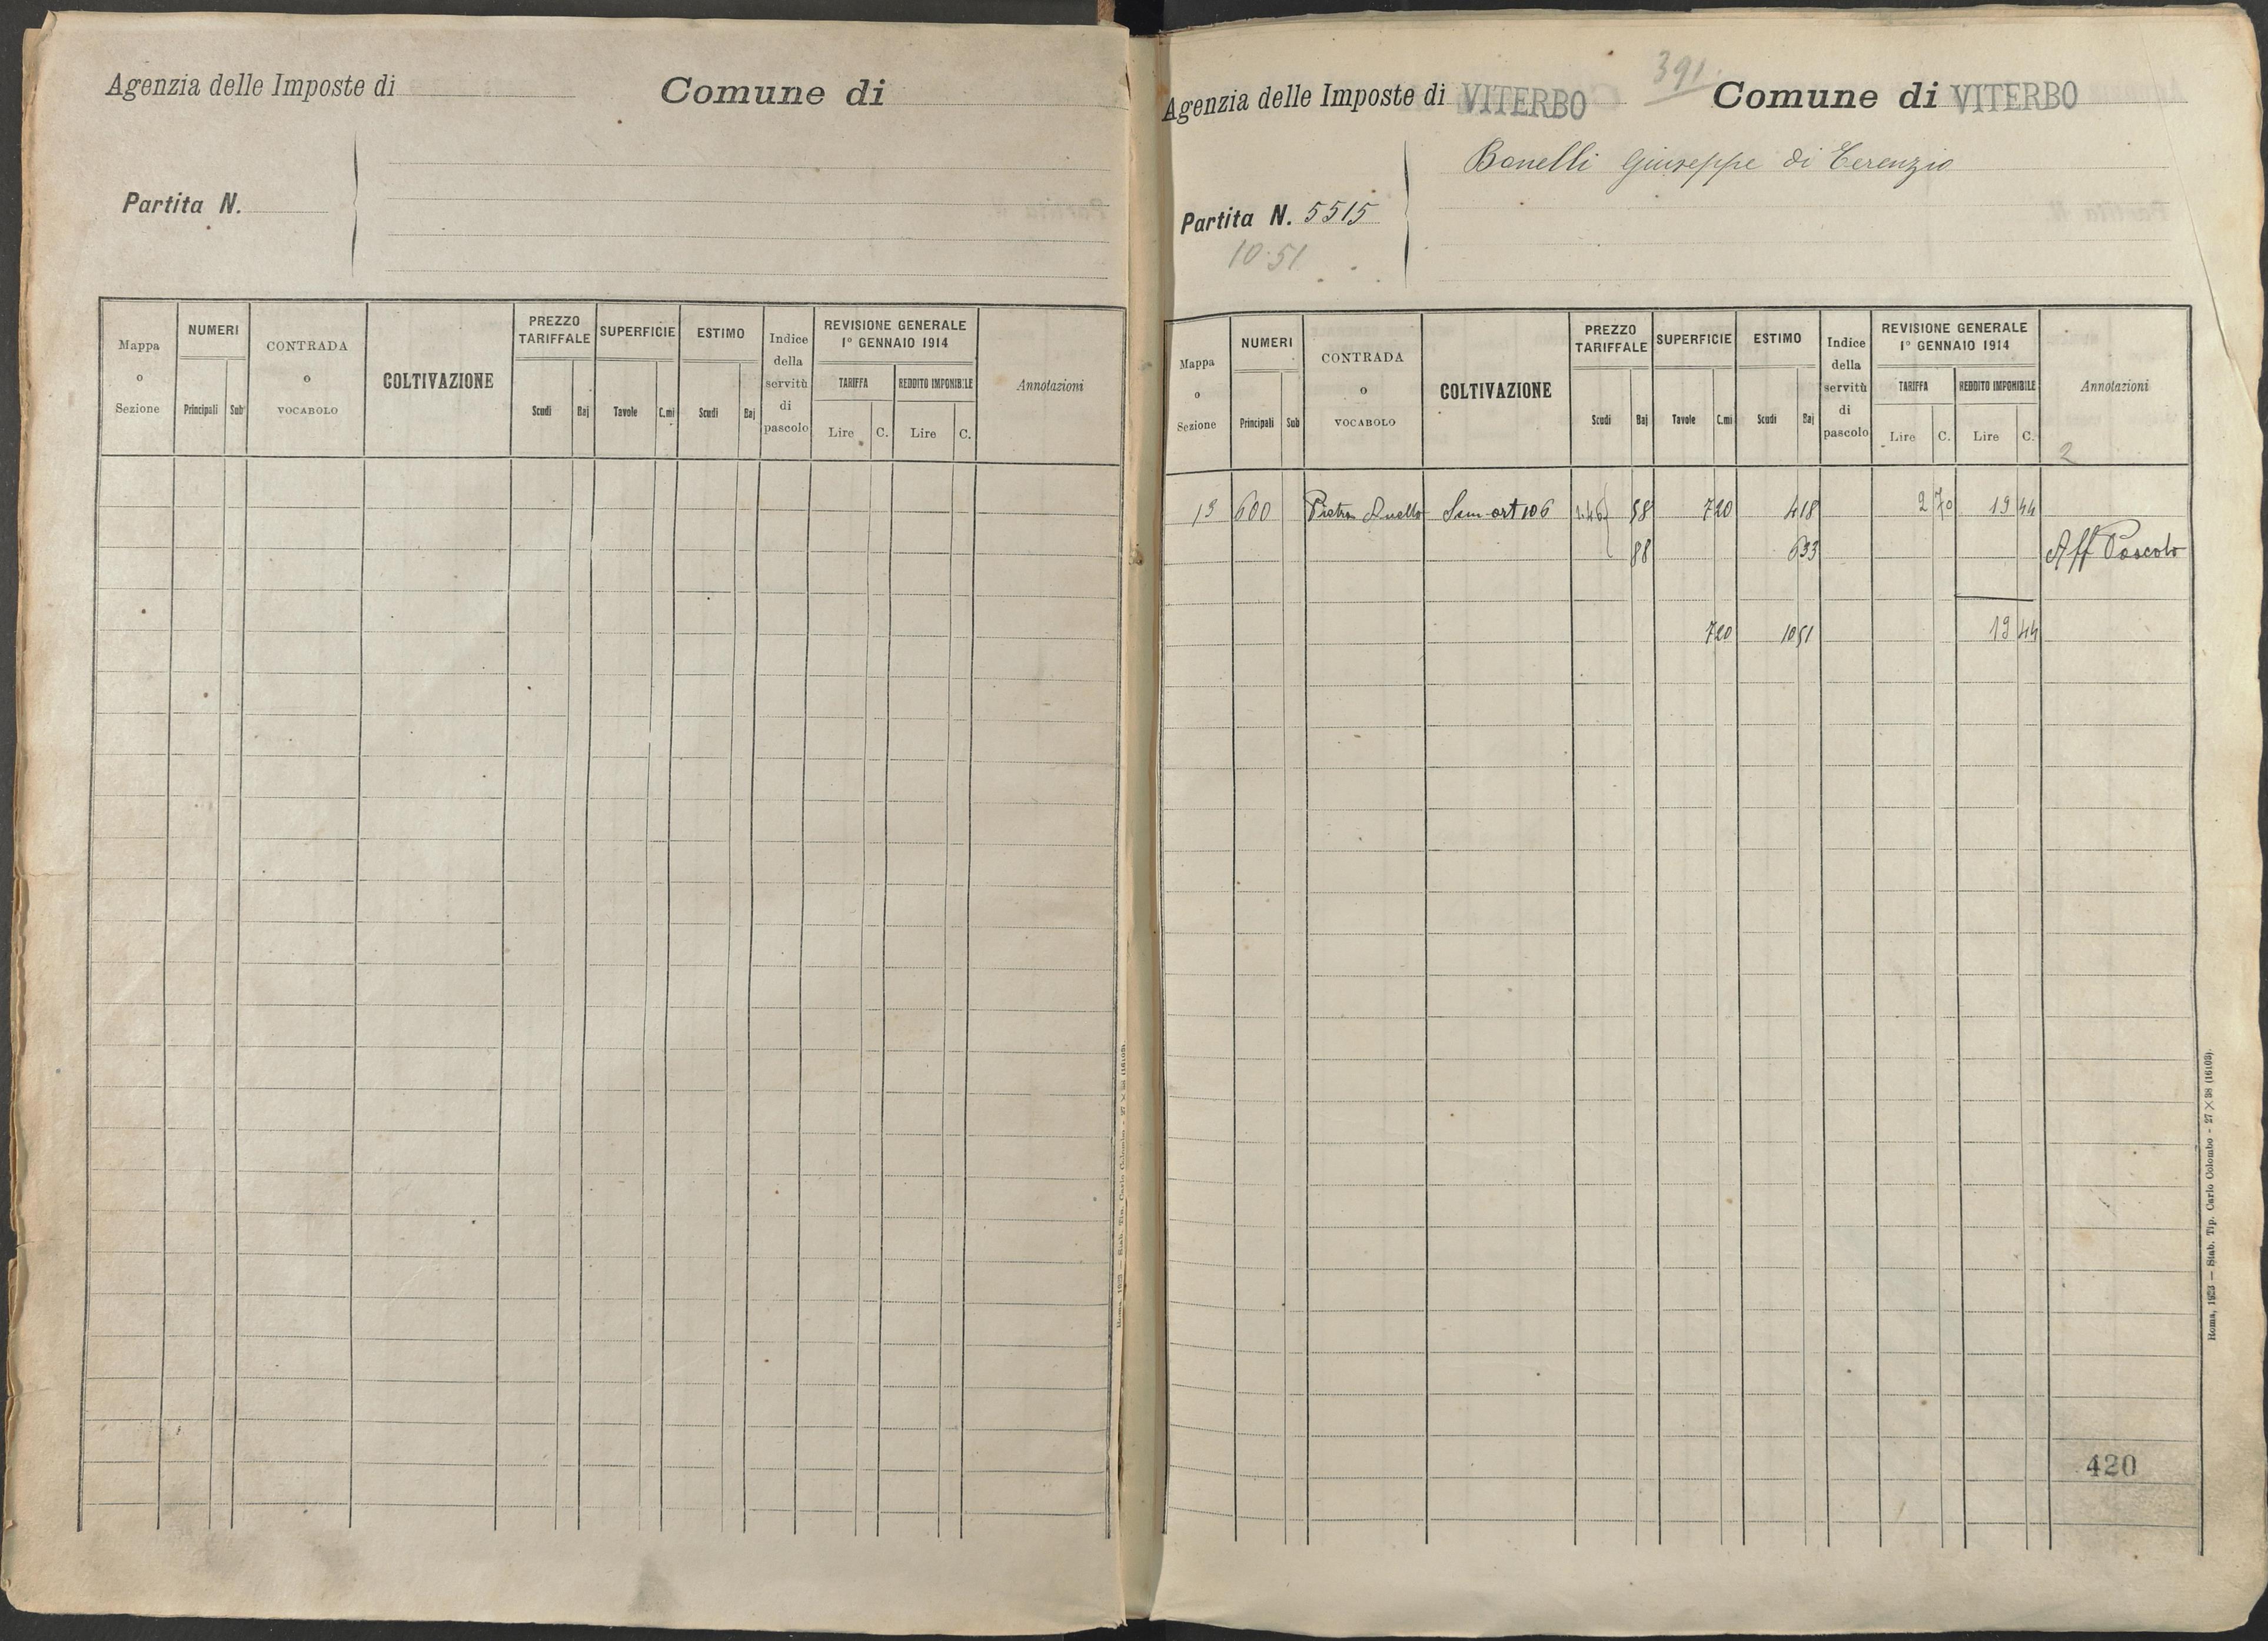 Agenzia delle Imposte di Comune di
Partita N.
Mappa o Sezione NUMERI Principali Sub CONTRADA o VOCABOLO COLTIVAZIONE PREZZO TARIFFALE Scudi Baj SUPERFICIE Tavole C.mi ESTIMO Scudi Baj Indice della servitù di pascolo REVISIONE GENERALE 1° GENNAIO 1914 TARIFFA Lire C. REDDITO IMPONIBILE Lire C. Annotazioni
391
Agenzia delle Imposte di VITERBO Comune di VITERBO
Bonelli Giuseppe di Terenzio
Partita N. 5515
10.51
Mappa o Sezione NUMERI Principali Sub CONTRADA o VOCABOLO COLTIVAZIONE PREZZO TARIFFALE Scudi Baj SUPERFICIE Tavole C.mi ESTIMO Scudi Baj Indice della servitù di pascolo REVISIONE GENERALE 1° GENNAIO 1914 TARIFFA Lire C. REDDITO IMPONIBILE Lire C. Annotazioni
2
19 600 Pietra Sem art 106 1.46 58 7 20 4 18 2 70 19 44
88 6 33 Aff Pascolo
7 20 10 51 19 44
420
Roma, 1923 — Stab. Tip. Carlo Colombo - 27 × 38 (16103).